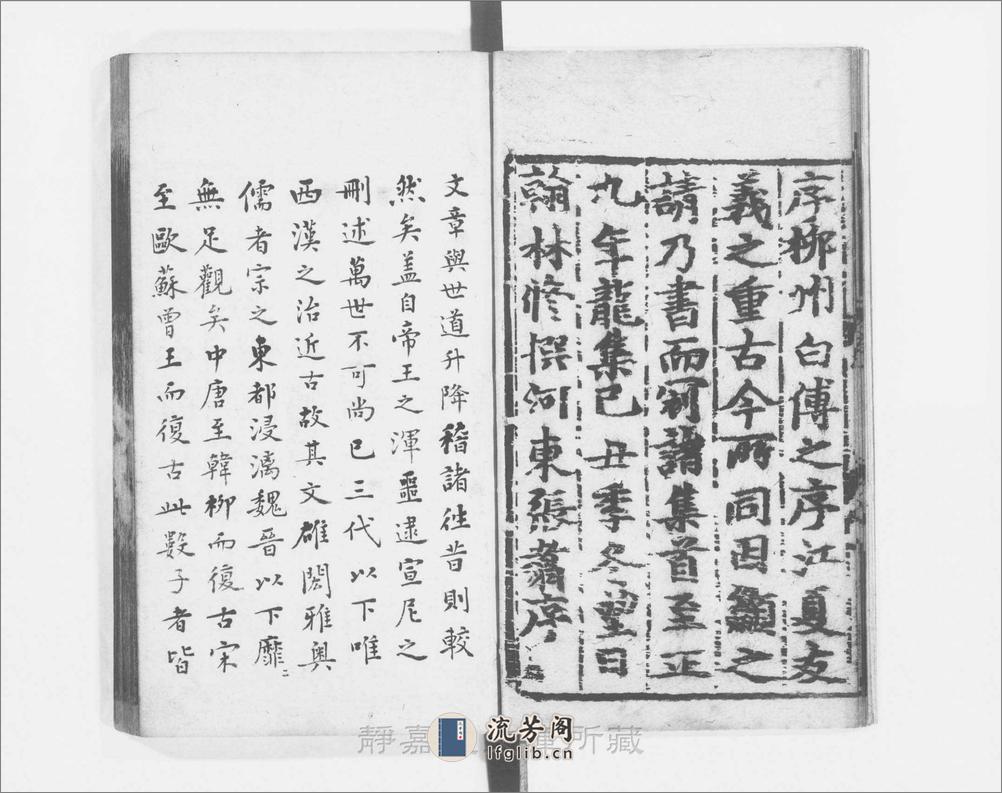 序柳州白傅之序江夏友
義之重古今所同因顯之
請乃書而冠諸集首至正
九年龍集己丑季冬望日
翰林修撰河東張翥序
文章與世道升降稽諸往昔則較
然矣盖自帝王之渾噩逮宣尼之
刪述萬世不可尚已三代以下唯
西漢之治近古故其文雄閎雅奥
儒者宗之東都浸漓魏晉以下靡〻
無足觀矣中唐至韓柳而復古宋
至歐蘇曾王而復古此數子者皆
靜嘉 所藏
流芳阁
lfglib.cn